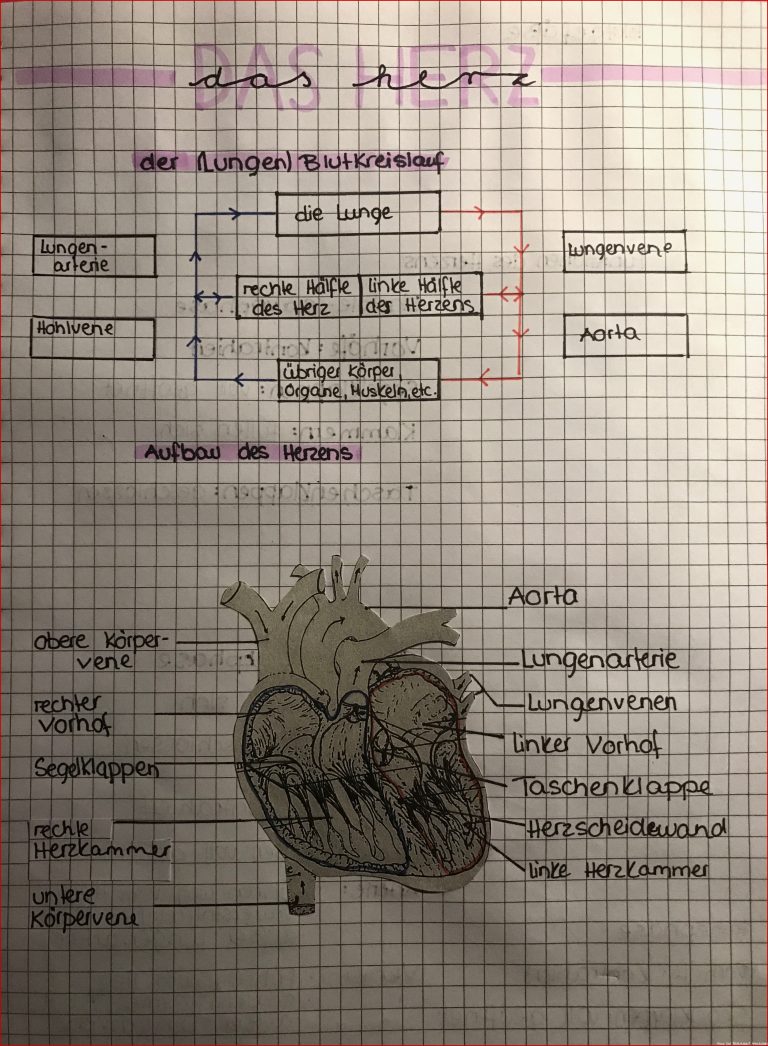 DAS HERZ
das herz
der (Lungen) Blutkreislauf
die Lunge
Lungen-
arterie
Lungenvene
rechte Hälfte
des Herz
linke Hälfte
des Herzens
Hohlvene
Aorta
übriger Körper,
Organe, Muskeln, etc.
Aufbau des Herzens
Aorta
obere Körper-
vene
Lungenarterie
rechter
Vorhof
Lungenvenen
linker Vorhof
Segelklappen
Taschenklappe
rechte
Herzkammer
Herzscheidewand
linke Herzkammer
untere
Körpervene